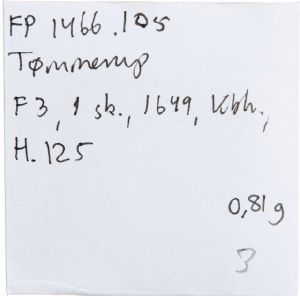 FP 1466.105
Tømmerup
F3, 1 sk., 1649, Kbh.,
H.125
0,81g
3